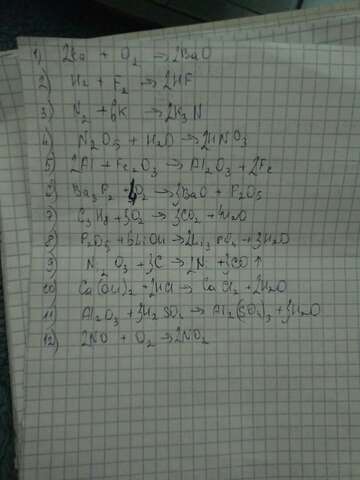 1) 2Ba + O₂ → 2BaO
2) H₂ + F₂ → 2HF
3) N₂ + 6K → 2K₃N
4) N₂O₅ + H₂O → 2HNO₃
5) 2Al + Fe₂O₃ → Al₂O₃ + 2Fe
6) Ba₃P₂ + 4O₂ → 3BaO + P₂O₅
7) C₃H₈ + 5O₂ → 3CO₂ + 4H₂O
8) P₂O₅ + 6LiOH → 2Li₃PO₄ + 3H₂O
9) N₂O₃ + 3C → 2N + 3CO ↑
10) Ca(OH)₂ + 2HCl → CaCl₂ + 2H₂O
11) Al₂O₃ + 3H₂SO₄ → Al₂(SO₄)₃ + 3H₂O
12) 2NO + O₂ → 2NO₂